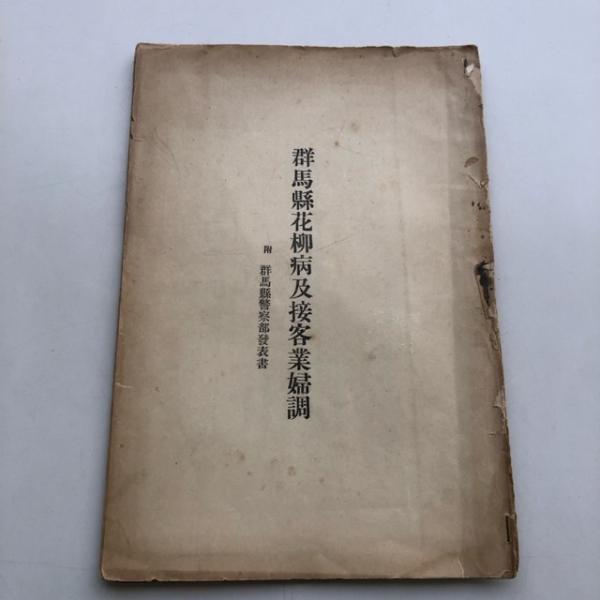 群馬縣花柳病及接客業婦調
附 群馬縣警察部發表書